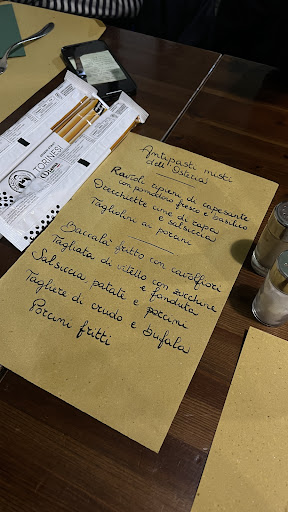 Antipasti misti
dell'Osteria
Ravioli ripieni di capesante
con pomodoro fresco e basilico
Orecchiette cime di rapa
e salsiccia
Tagliolini ai porcini
Baccalà fritto con cavolfiori
Tagliata di vitello con zucchine
e fonduta
Salsiccia patate e porcini
Tagliere di crudo e bufala
Porcini fritti
TORINESI